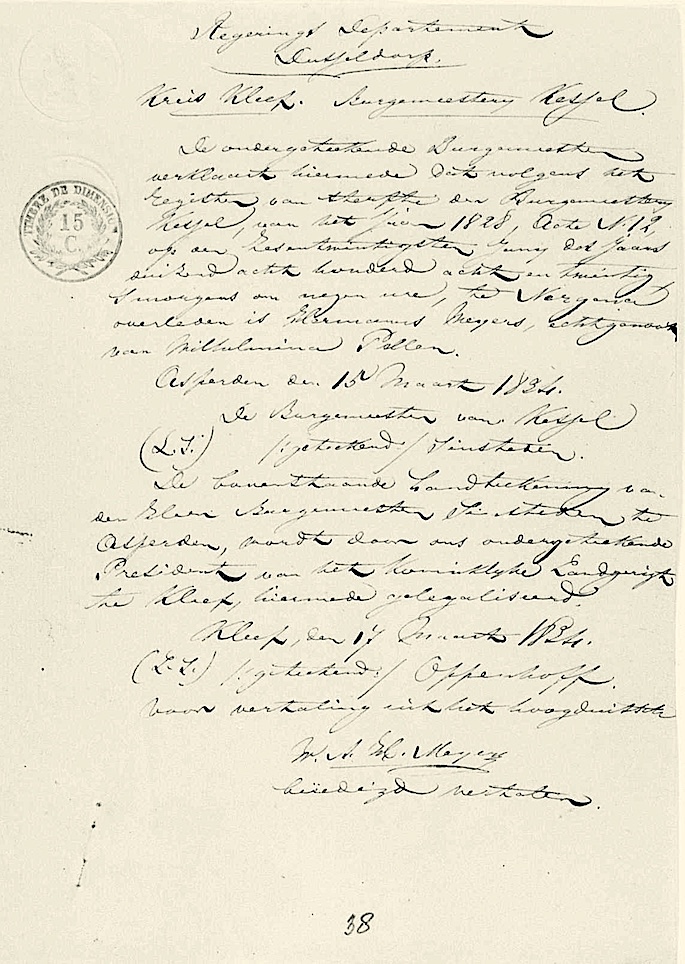 Regerings Departement
Dusseldorp.
Kreis Kleef. Burgemeestery Kessel.
De ondergeteekende Burgemeester
verklaart hiermede dat volgens het
register van sterfte der Burgemeestery
Kessel, van het Jaar 1828, Acte N. 12,
op den zesentwintigsten Juny des Jaars
duizend acht honderd acht en twintig
Smorgens om negen ure, te Nergena
overleden is Hermanus Meyers, echtgenoot
van Wilhelmina Pellen.
Asperden den 15 Maart 1834.
De Burgemeester van Kessel
(L.S.) /:geteekend:/ Sinsteden.
De bovenstaande handteekening van
den Heer Burgemeester Sinsteden te
Asperden, wordt door ons ondergeteekende
President van het koninklyke Landgerigt
te Kleef, hiermede gelegaliseerd.
Kleef, den 17 Maart 1834.
(L.S.) /:geteekend:/ Oppenhoff.
Voor vertaling uit het hoogduitsche
W. A. H. Meyer
beëedigd vertaler.
TIMBRE DE DIMENSION
15
C.
38